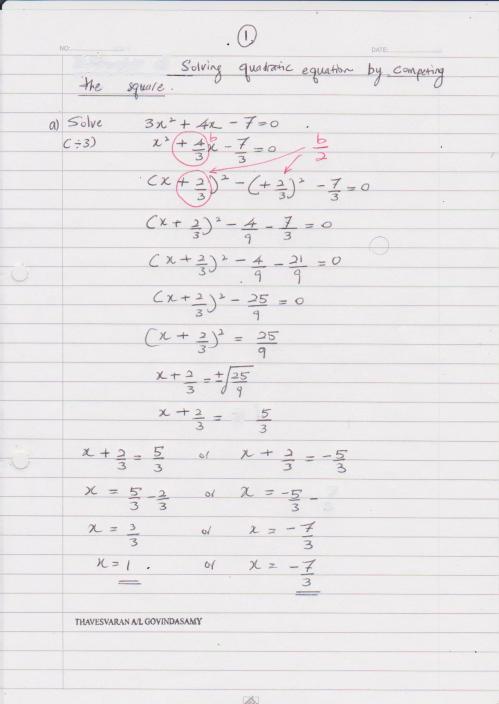 1.
NO: DATE:
Solving quadratic equation by competing
the square.
a) Solve 3x² + 4x - 7 = 0.
(÷3) x² + 4/3 x - 7/3 = 0 b b/2
(x + 2/3)² - (+2/3)² - 7/3 = 0
(x + 2/3)² - 4/9 - 7/3 = 0
(x + 2/3)² - 4/9 - 21/9 = 0
(x + 2/3)² - 25/9 = 0
(x + 2/3)² = 25/9
x + 2/3 = ±√25/9
x + 2/3 = 5/3
x + 2/3 = 5/3 or x + 2/3 = -5/3
x = 5/3 - 2/3 or x = -5/3 -
x = 3/3 or x = -7/3
x = 1. or x = -7/3
THAVESVARAN A/L GOVINDASAMY